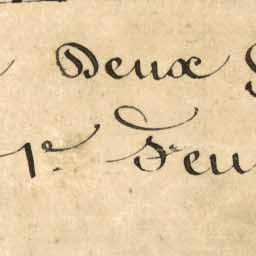 Deux
1e. Feu